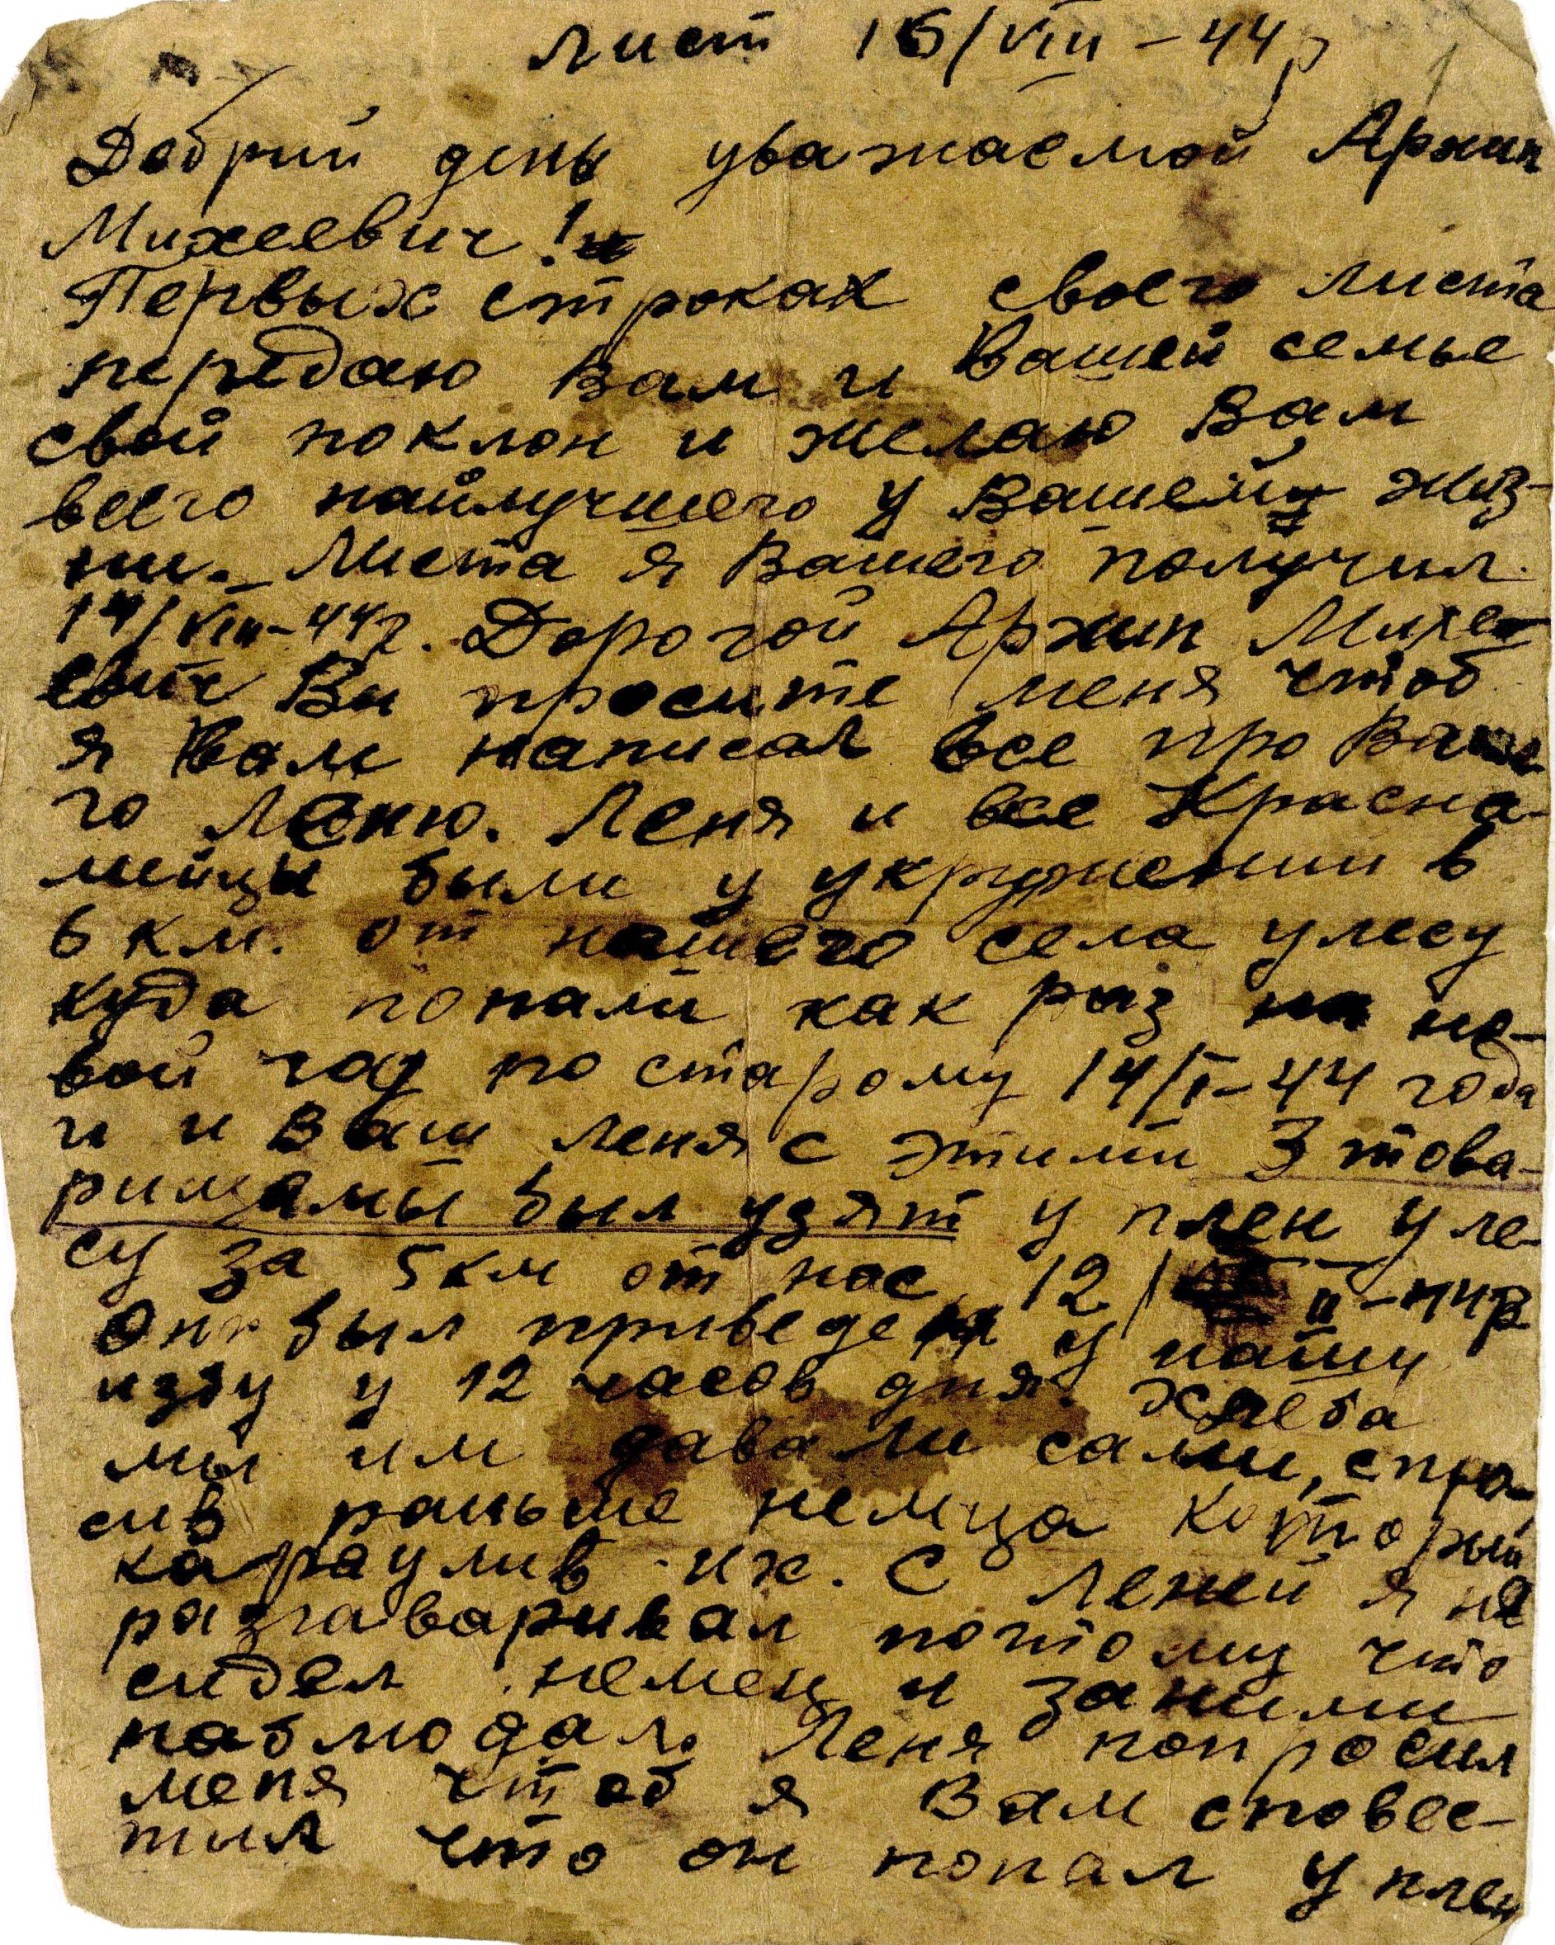 Лист 16/VIII-44 р
Добрий день уважаемой Архип
Михеевич!
Первых строках своего листа
передаю Вам и Вашей семье
свой поклон и желаю Вам
всего найлучшего у Вашему жиз-
ни. Листа я Вашего получил
14/VIII-44г. Дорогой Архип Михе-
евич Ви просите меня чтоб
я Вам написал все про Ваше
го Леню. Леня и все Красна-
мейцы были у укружении в
6 км. от нашего села улесу
куда попали как раз на но-
вой год по старому 14/I-44 года
и и Ваш Леня с этими 3 това-
рищамы был узят у плен у ле-
су за 5 км от нас 12/ II-44р
Он был приведен у нашу
избу у 12 часов дня. Хлеба
мы им давали сами, спро-
сив раньше немца который
караулив их. С Леней я не
разгаваривал потому что
сидел немец и заними
наблюдал. Леня попросил
меня чтоб я Вам сповес-
тил что он попал у плен